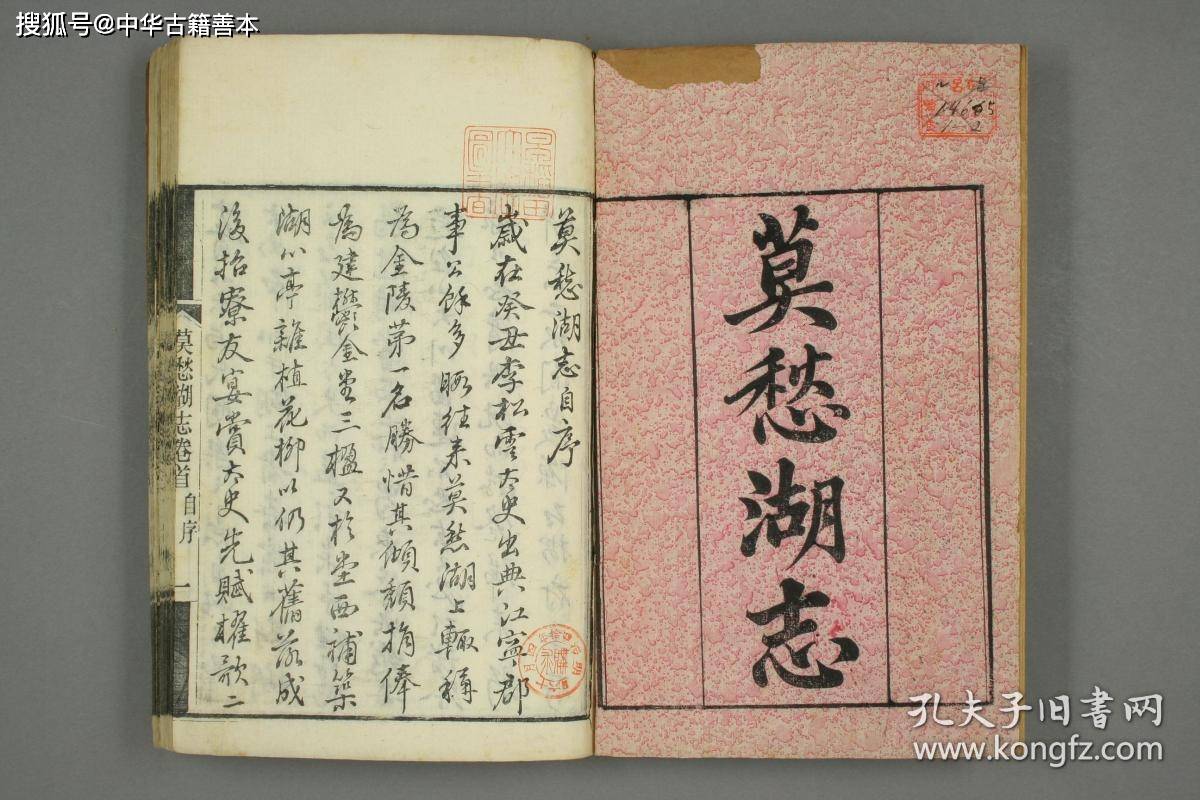 搜狐号@中华古籍善本
莫愁湖志
莫愁湖志自序
歲在癸丑李松雲太史出典江寧郡
事公餘多暇往来莫愁湖上輙稱
為金陵苐一名勝惜其傾頽捐俸
為建鬱金堂三楹又於堂西補築
湖心亭雜植花柳以仍其舊落成
後招寮友宴賞太史先賦櫂歌二
莫愁湖志卷首 自序 一
孔夫子旧书网
www.kongfz.com